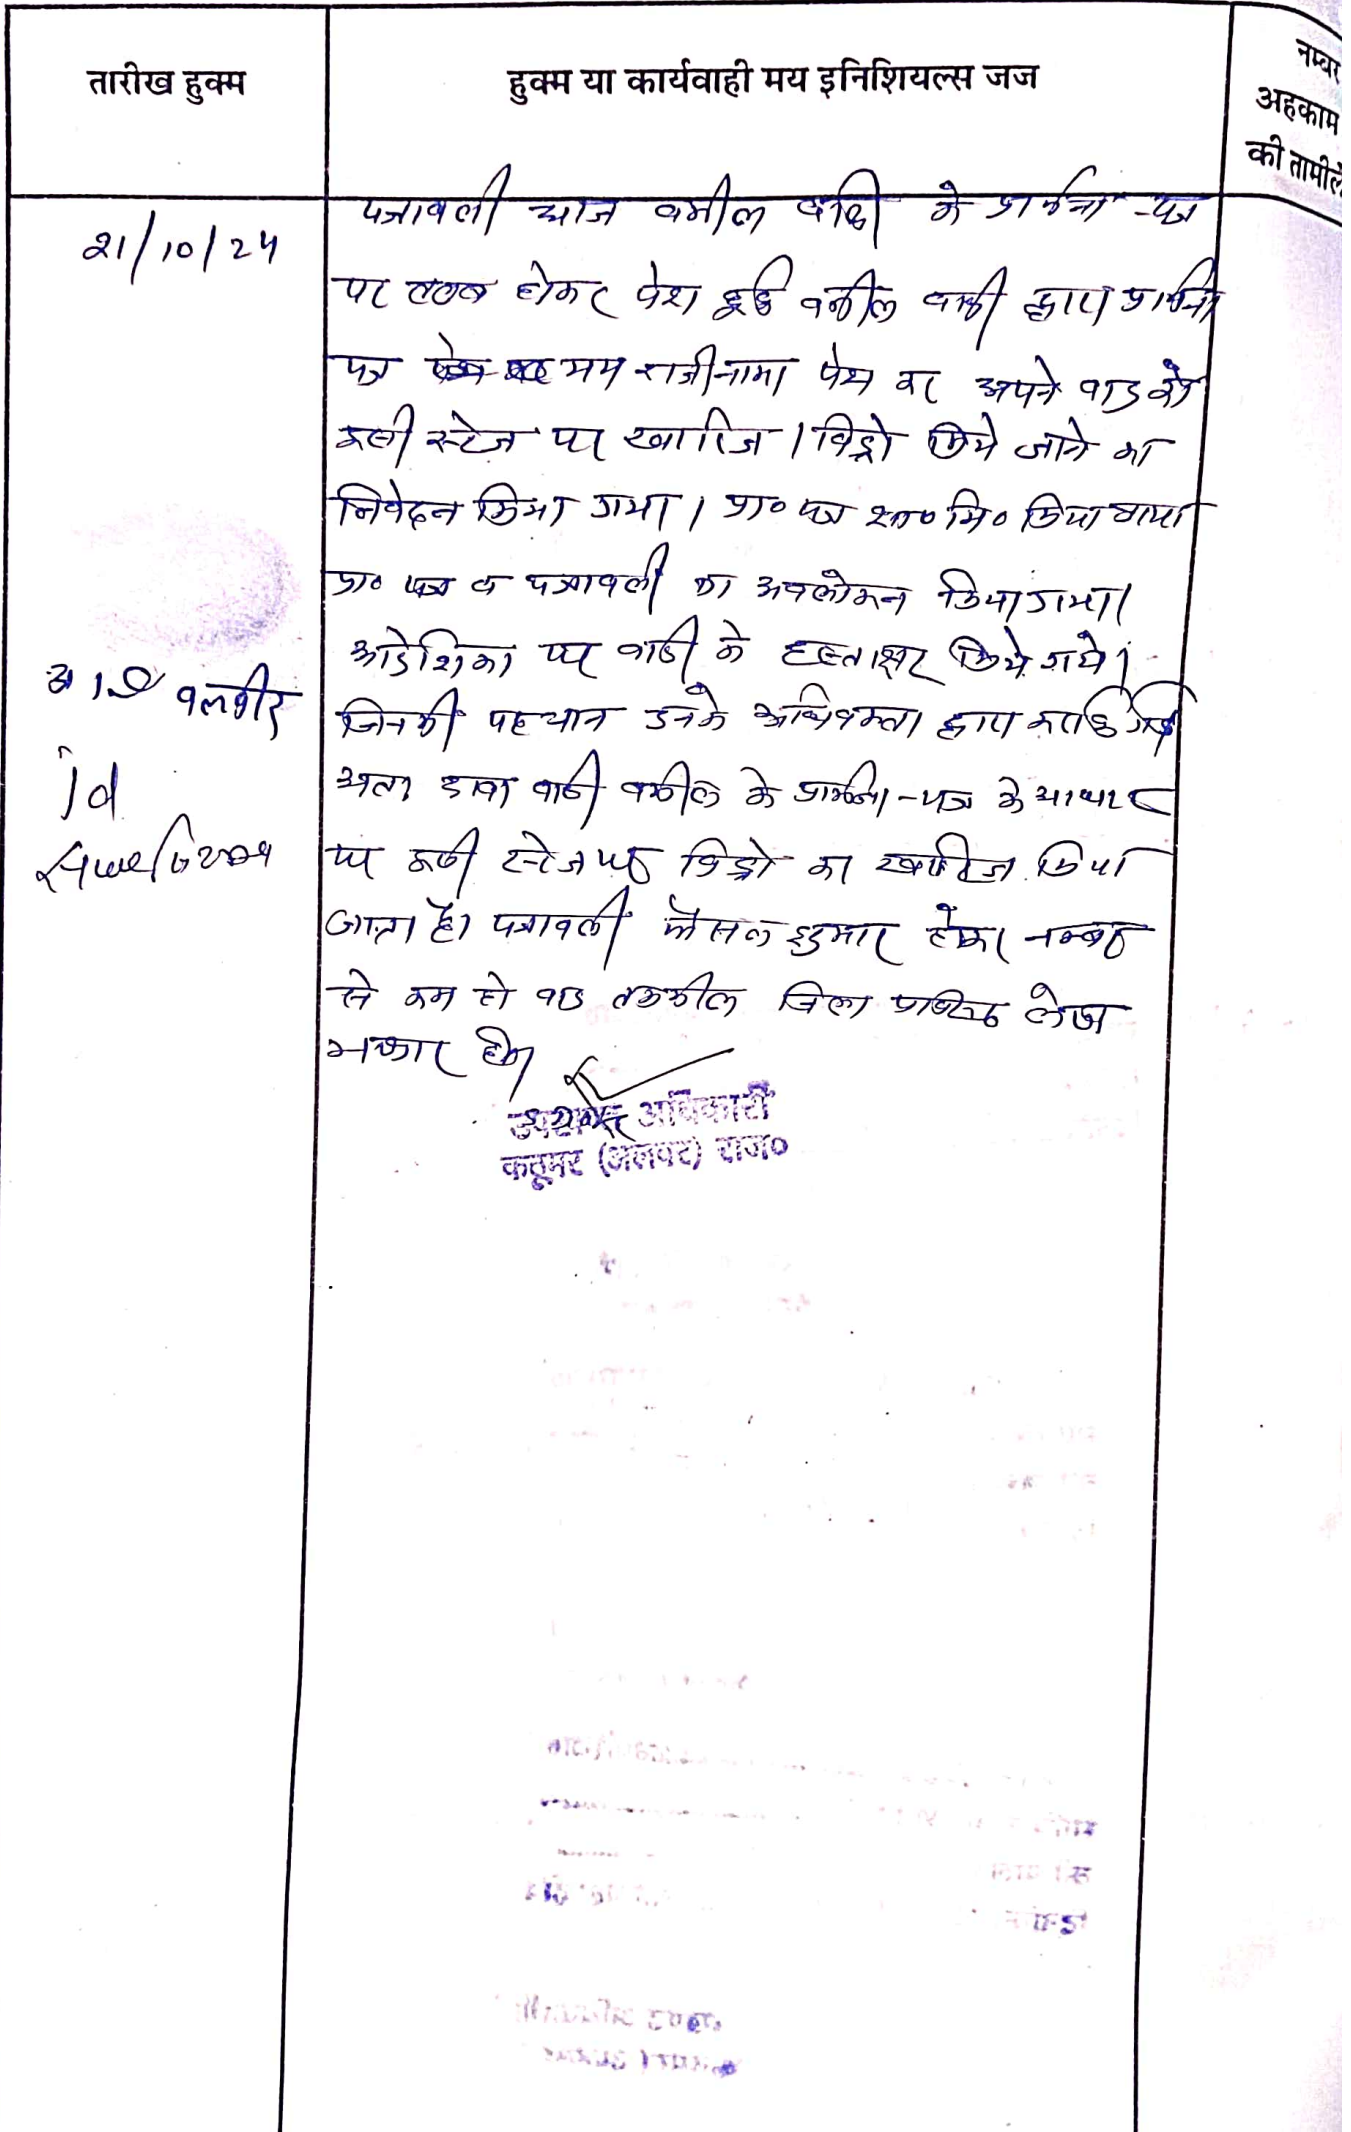 तारीख हुक्म
हुक्म या कार्यवाही मय इनिशियल्स जज
नम्बर
अहकाम
की तामील
21/10/24
पत्रावली आज वकील वादी के प्रार्थना-पत्र
पर तलब होकर पेश हुई वकील वादी द्वारा प्रार्थना
पत्र मय राजीनामा पेश कर अपने वाद को
इसी स्टेज पर खारिज / विड्रो किये जाने का
निवेदन किया गया। प्रा० पत्र शा० मि० किया गया
प्रा० पत्र व पत्रावली का अवलोकन किया गया।
आदेशिका पर वादी के हस्ताक्षर किये गये।
जिनकी पहचान उनके अधिवक्ता द्वारा कराई गई
अतः दावा वादी वकील के प्रार्थना-पत्र के आधार
पर इसी स्टेज पर विड्रो का खारिज किया
जाता है। पत्रावली फैसल शुमार होकर नम्बर
से कम हो बाद तकमील जिला अभिलेख
हो।
बलवीर
Id
उपखण्ड अधिकारी
कठूमर (अलवर) राज०